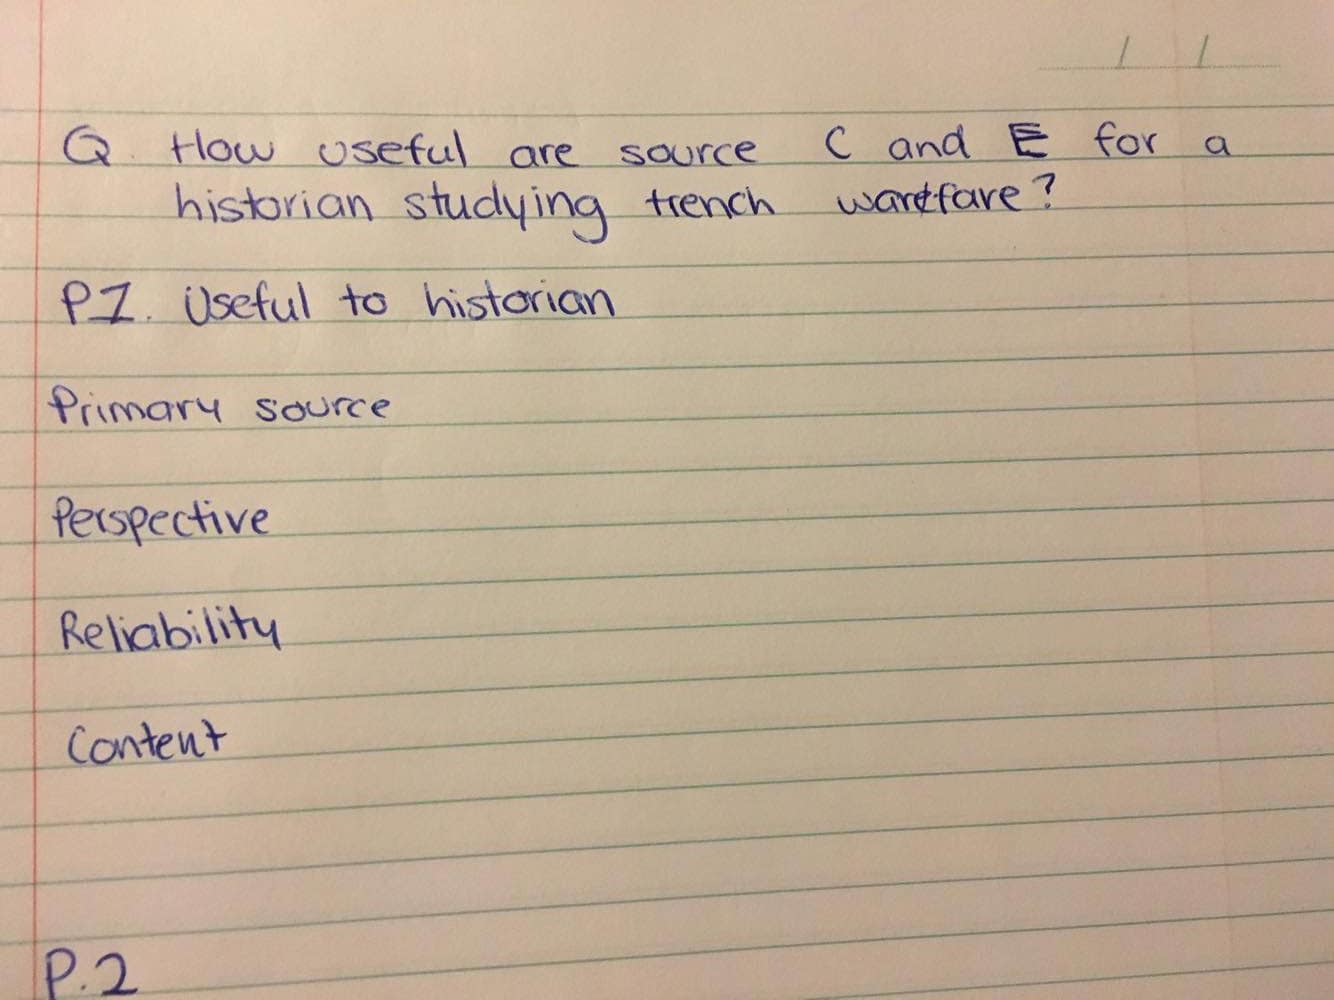 / /
Q. How useful are source C and E for a
historian studying trench warfare?
P1. Useful to historian
Primary source
Perspective
Reliability
Content
P.2